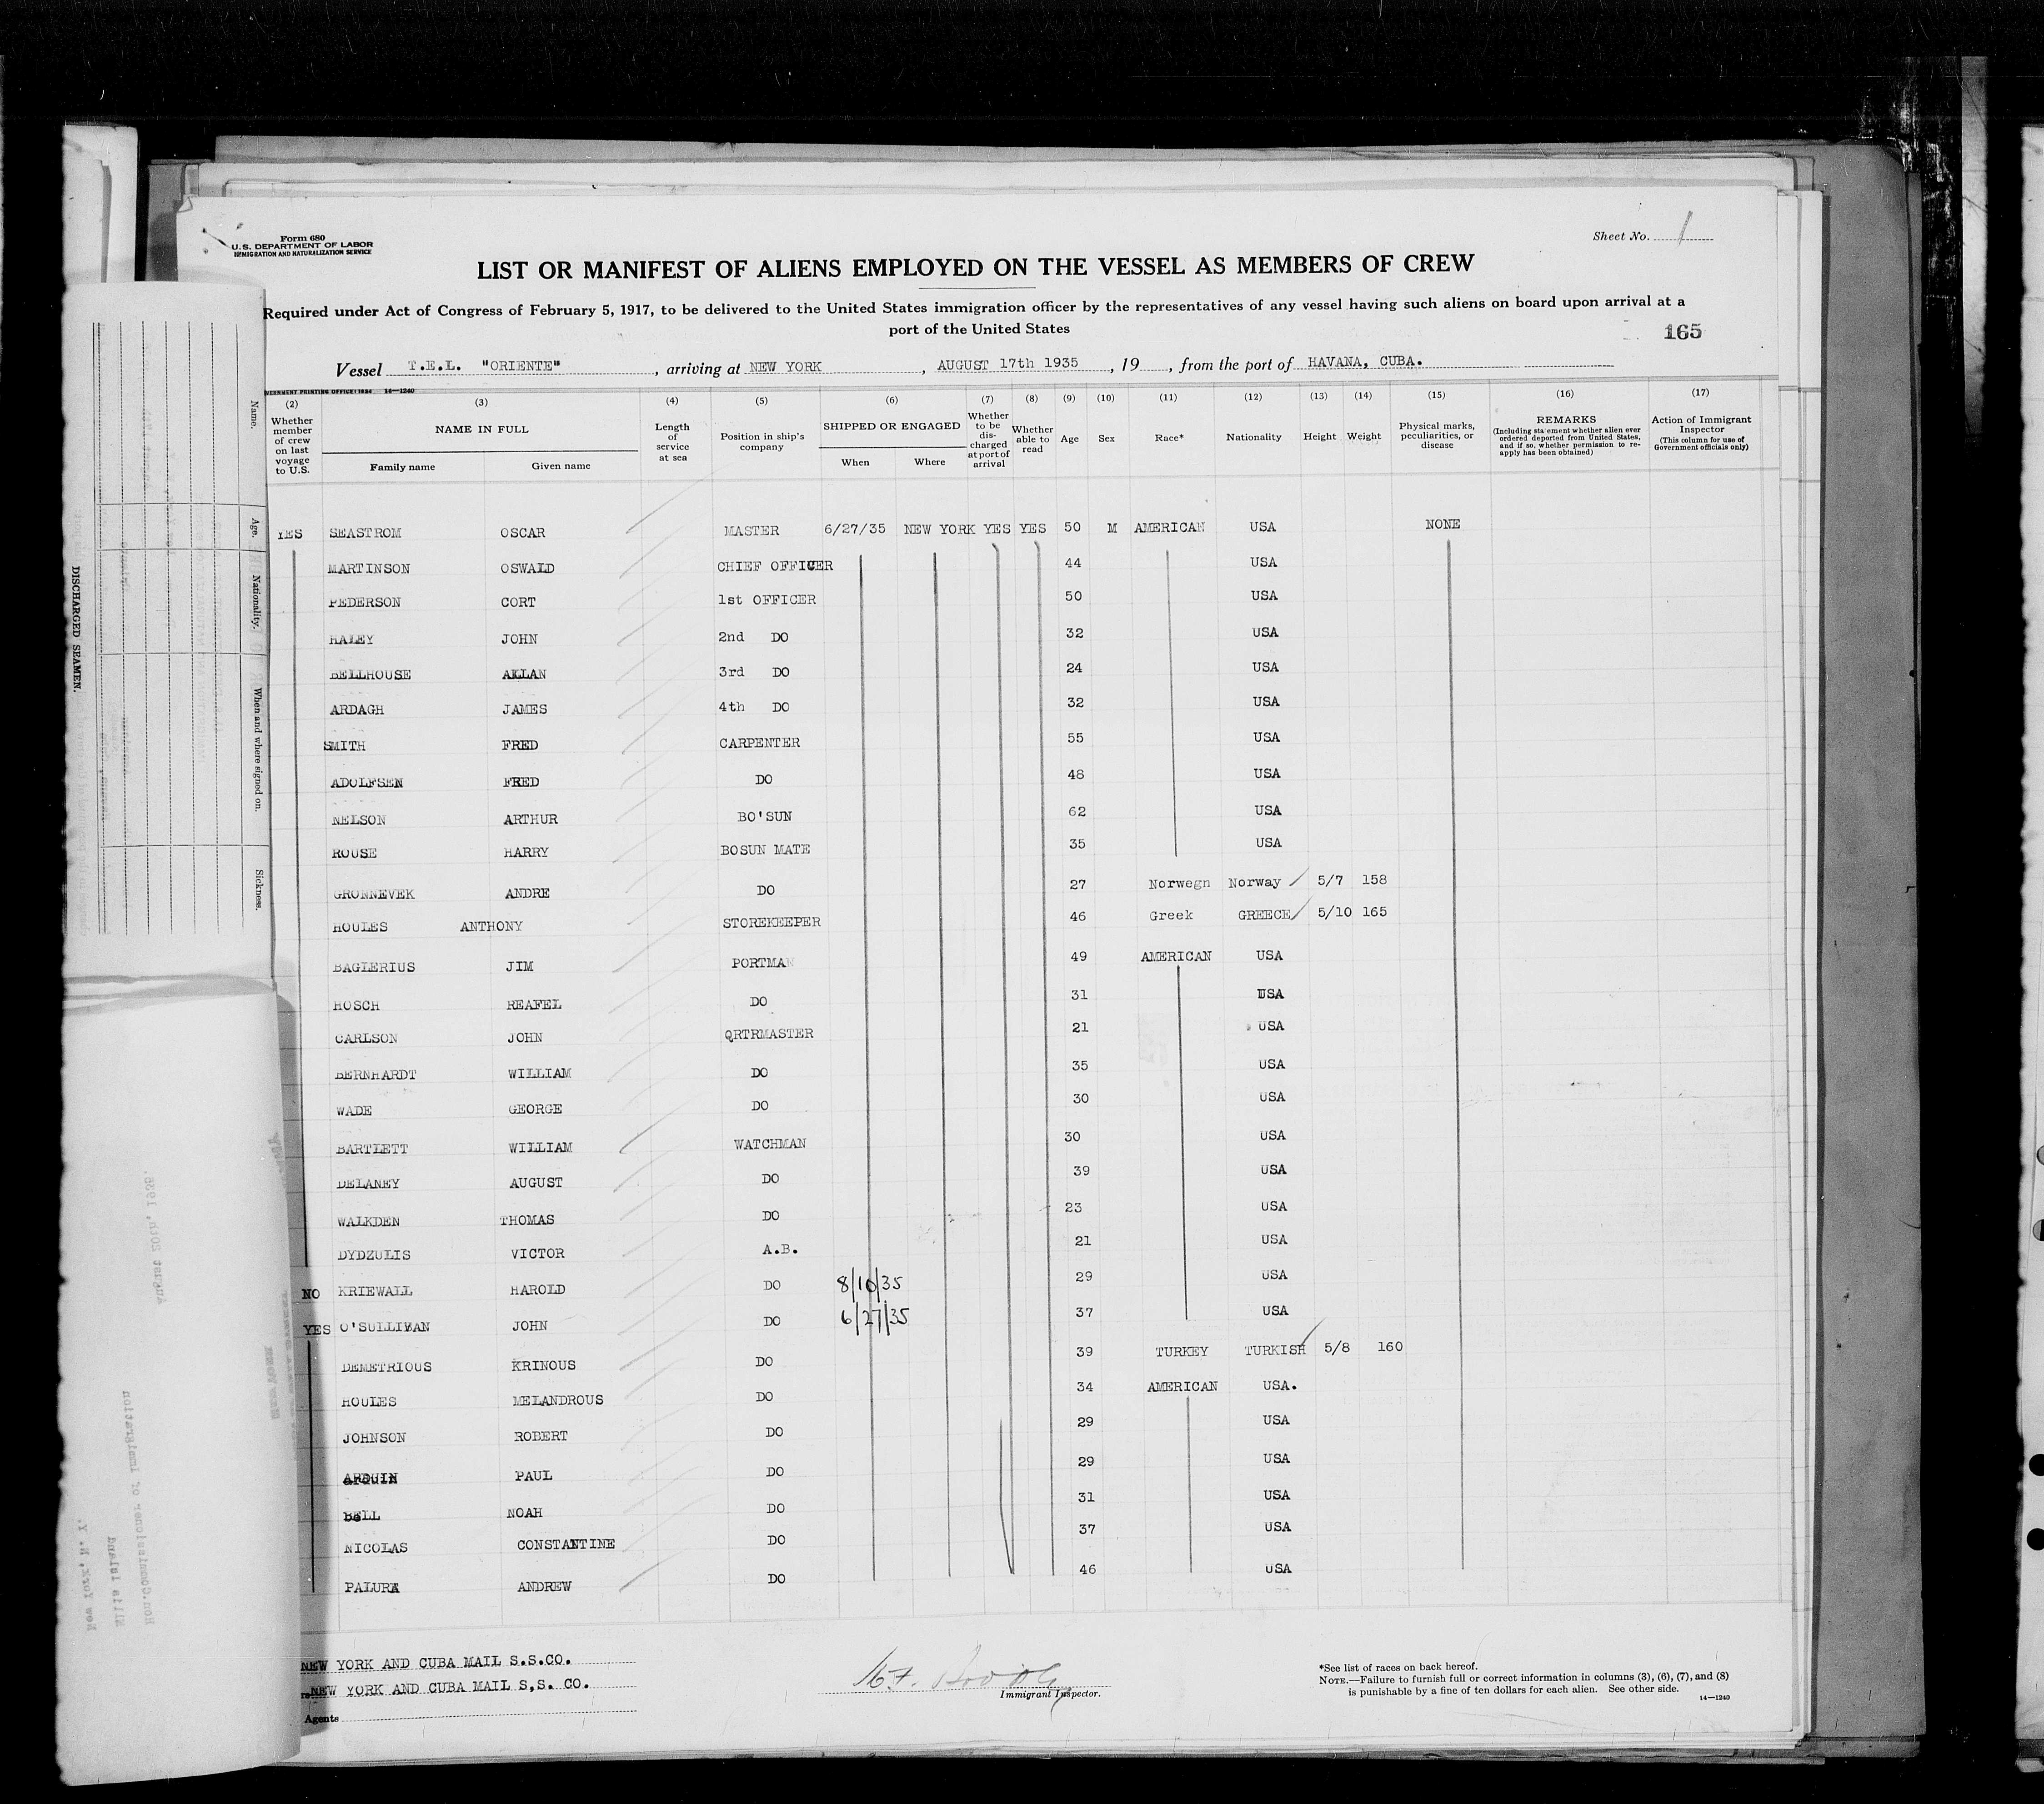 Form 680
U. S. DEPARTMENT OF LABOR
IMMIGRATION AND NATURALIZATION SERVICE
Sheet No. 1
LIST OR MANIFEST OF ALIENS EMPLOYED ON THE VESSEL AS MEMBERS OF CREW
Required under Act of Congress of February 5, 1917, to be delivered to the United States immigration officer by the representatives of any vessel having such aliens on board upon arrival at a
port of the United States
165
Vessel T.E.L. "ORIENTE", arriving at NEW YORK, AUGUST 17th 1935, 19, from the port of HAVANA, CUBA.
VERNMENT PRINTING OFFICE: 1934 14—1240
(2) (3) (4) (5) (6) (7) (8) (9) (10) (11) (12) (13) (14) (15) (16) (17)
Whether member of crew on last voyage to U.S.
NAME IN FULL
Family name Given name
Length of service at sea
Position in ship's company
SHIPPED OR ENGAGED
When Where
Whether to be discharged at port of arrival
Whether able to read
Age Sex Race* Nationality Height Weight
Physical marks, peculiarities, or disease
REMARKS
(Including statement whether alien ever ordered deported from United States, and if so, whether permission to re-apply has been obtained)
Action of Immigrant Inspector
(This column for use of Government officials only)
YES SEASTROM OSCAR MASTER 6/27/35 NEW YORK YES YES 50 M AMERICAN USA NONE
MARTINSON OSWALD CHIEF OFFICER 44 USA
PEDERSON CORT 1st OFFICER 50 USA
HALEY JOHN 2nd DO 32 USA
BELLHOUSE ALLAN 3rd DO 24 USA
ARDAGH JAMES 4th DO 32 USA
SMITH FRED CARPENTER 55 USA
ADOLFSEN FRED DO 48 USA
NELSON ARTHUR BO'SUN 62 USA
ROUSE HARRY BOSUN MATE 35 USA
GRONNEVEK ANDRE DO 27 Norwegn Norway 5/7 158
HOULES ANTHONY STOREKEEPER 46 Greek GREECE 5/10 165
BAGLERIUS JIM PORTMAN 49 AMERICAN USA
HOSCH REAFEL DO 31 USA
CARLSON JOHN QRTRMASTER 21 USA
BERNHARDT WILLIAM DO 35 USA
WADE GEORGE DO 30 USA
BARTLETT WILLIAM WATCHMAN 30 USA
DELANEY AUGUST DO 39 USA
WALKDEN THOMAS DO 23 USA
DYDZULIS VICTOR A.B. 21 USA
NO KRIEWALL HAROLD DO 8/10/35 29 USA
YES O'SULLIVAN JOHN DO 6/27/35 37 USA
DEMETRIOUS KRINOUS DO 39 TURKEY TURKISH 5/8 160
HOULES MELANDROUS DO 34 AMERICAN USA.
JOHNSON ROBERT DO 29 USA
ARQUIN PAUL DO 29 USA
BELL NOAH DO 31 USA
NICOLAS CONSTANTINE DO 37 USA
PALURA ANDREW DO 46 USA
NEW YORK AND CUBA MAIL S.S.CO.
NEW YORK AND CUBA MAIL S,S. CO.
Agents
Immigrant Inspector.
*See list of races on back hereof.
NOTE.—Failure to furnish full or correct information in columns (3), (6), (7), and (8)
is punishable by a fine of ten dollars for each alien. See other side.
14—1240
DISCHARGED SEAMEN.
Name.
Age.
Nationality.
When and where signed on.
Sickness.
August 20th, 1935.
Hon. Commissioner of Immigration
Ellis Island
New York, N. Y.